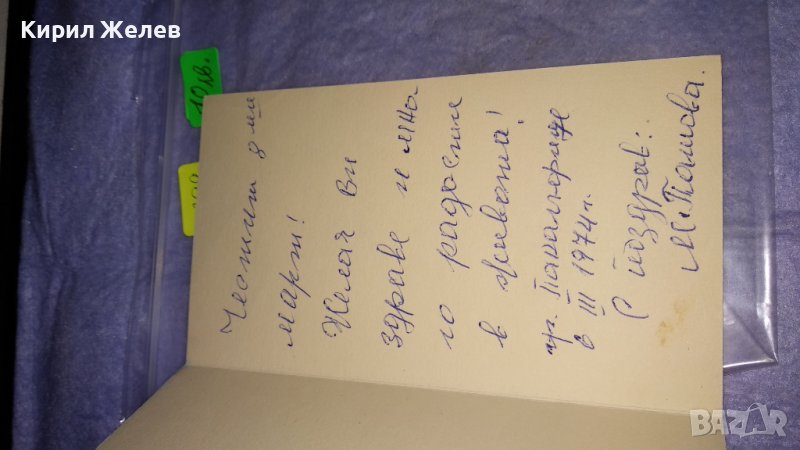 Кирил Желев
10лв.
Честит 8 ми
март!
Желая Ви
здраве и мно-
го радости
в живота!
гр. Панагюрище
6 III 1974 г.
С поздрав:
М. Пашова.
BAZAR